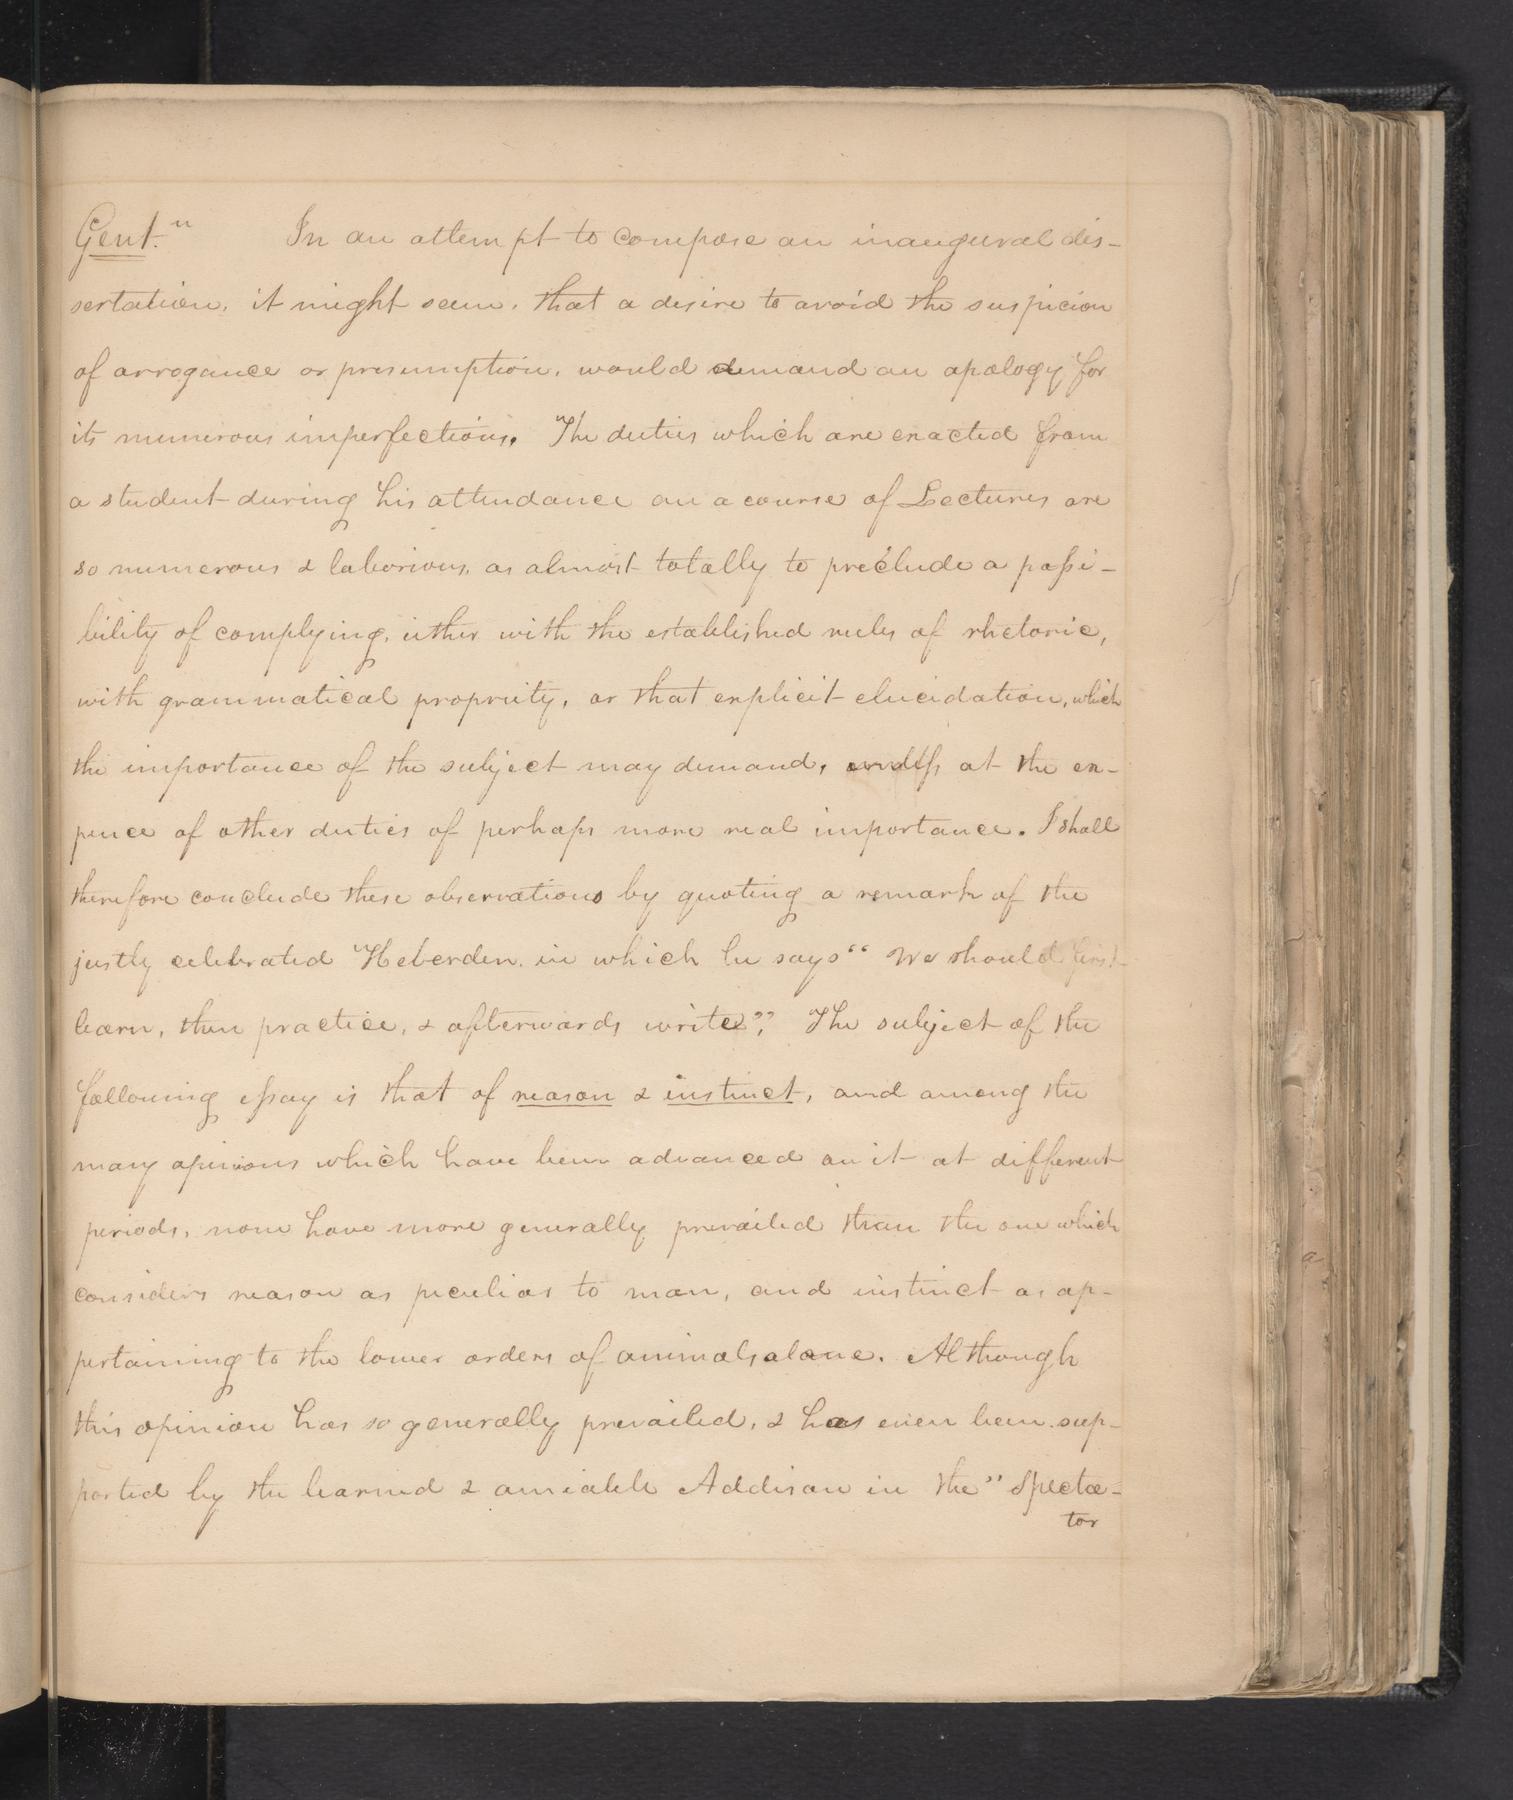 Gent.n In an attempt to compose an inaugural dis-
sertation, it might seem, that a desire to avoid the suspicion
of arrogance or presumption, would demand an apology for
its numerous imperfections. The duties which are exacted from
a student during his attendance on a course of Lectures are
so numerous & laborious, as almost totally to preclude a possi-
bility of complying, either with the established rules of rhetoric,
with grammatical propriety, or that explicit elucidation, which
the importance of the subject may demand, unless at the ex-
pence of other duties of perhaps more real importance. I shall
therefore conclude these observations by quoting a remark of the
justly celebrated Heberden in which he says "We should first
learn, then practice, & afterwards write". The subject of the
following essay is that of reason & instinct, and among the
many opinions which have been advanced on it at different
periods, none have more generally prevailed than the one which
considers reason as peculiar to man, and instinct as ap-
pertaining to the lower orders of animals alone. Although
this opinion has so generally prevailed, & has even been sup-
ported by the learned & amiable Addison in the "Specta-
tor